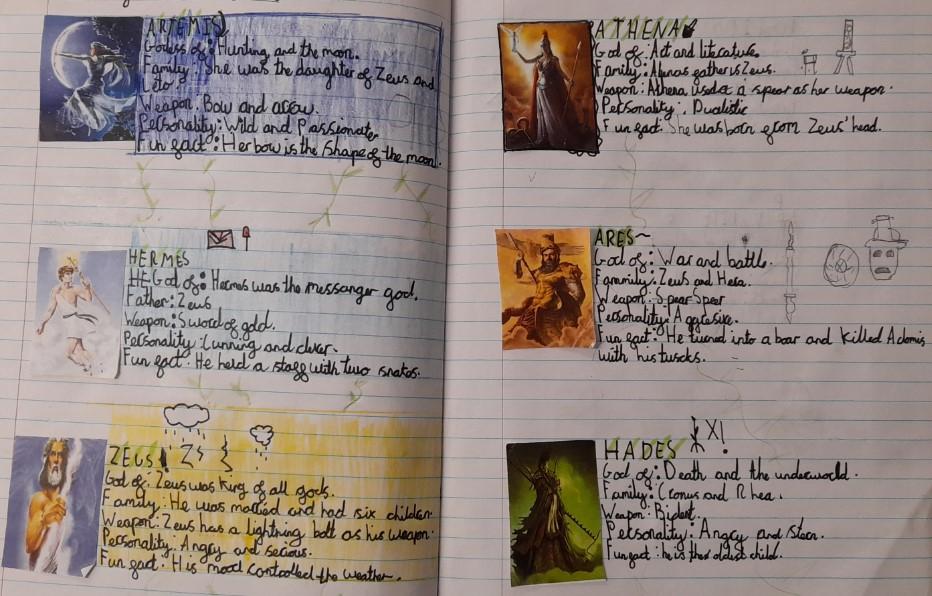 ARTEMIS
Godess of: Hunting and the moon.
Family: She was the daughter of Zeus and
Leto.
Weapon: Bow and arow.
Personality: Wild and Passionate
Fun fact: Her bow is the shape of the moon.
HERMES
HE God of: Hermes was the messanger god.
Father: Zeus
Weapon: Sword of gold.
Personality: Cunning and clever.
Fun fact: He held a staff with two snakes.
ZEUS
God of: Zeus was King of all gods.
Family: He was married and had six children.
Weapon: Zeus has a lightning bolt as his weapon.
Personality: Angry and serious.
Fun fact: His mood controlled the weather.
ATHENA
God of: Art and literature.
Family: Athenas father is Zeus.
Weapon: Athena used a spear as her weapon.
Personality: Dualistic
Fun fact: She was born from Zeus' head.
ARES
God of: War and battle.
Fammily: Zeus and Hera.
Weapon: Spear Spear
Personality: Aggresive.
Fun fact: He turned into a boar and killed Adonis
with his tuscks.
HADES
God of: Death and the underworld.
Family: Cronus and Rhea.
Weapon: Bident.
Personality: Angry and stern.
Fun fact: he is ther oldest child.